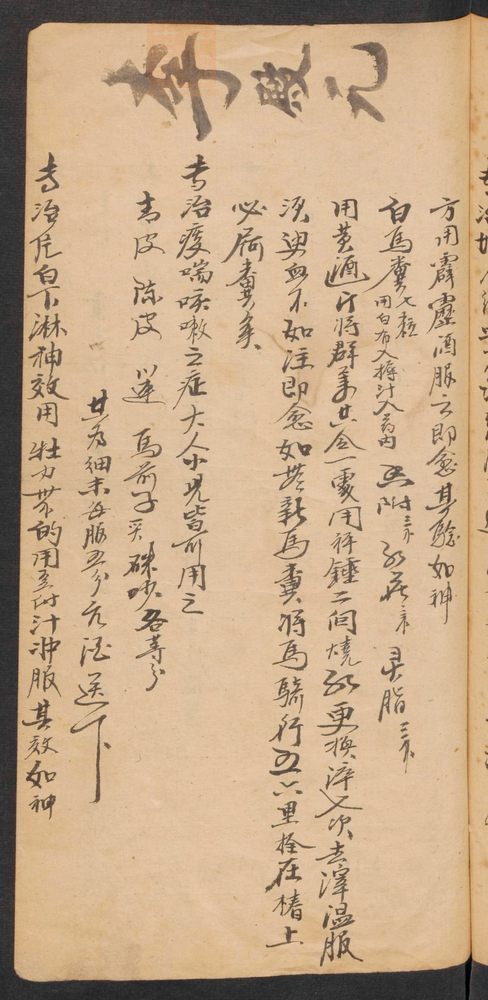 元殿李
方用霹靂酒服之即愈其驗如神
白馬糞七粒用白布入搏汁入藥內 香附三下 紅花三下 灵脂三下
用黃酒汁將群藥共合一處用秤錘二個燒紅更換淬七次去渣溫服
須史血不如注即愈如無新馬糞將馬騎行五六里拴在樁上
必屙糞矣
專治痰喘咳嗽之症大人小兒皆可用之
青皮 陳皮 馬前子 硃砂各等分
共為細末每服五分元酒送下
專治尼白下淋神效用牡力 的用 汁沖服其效如神